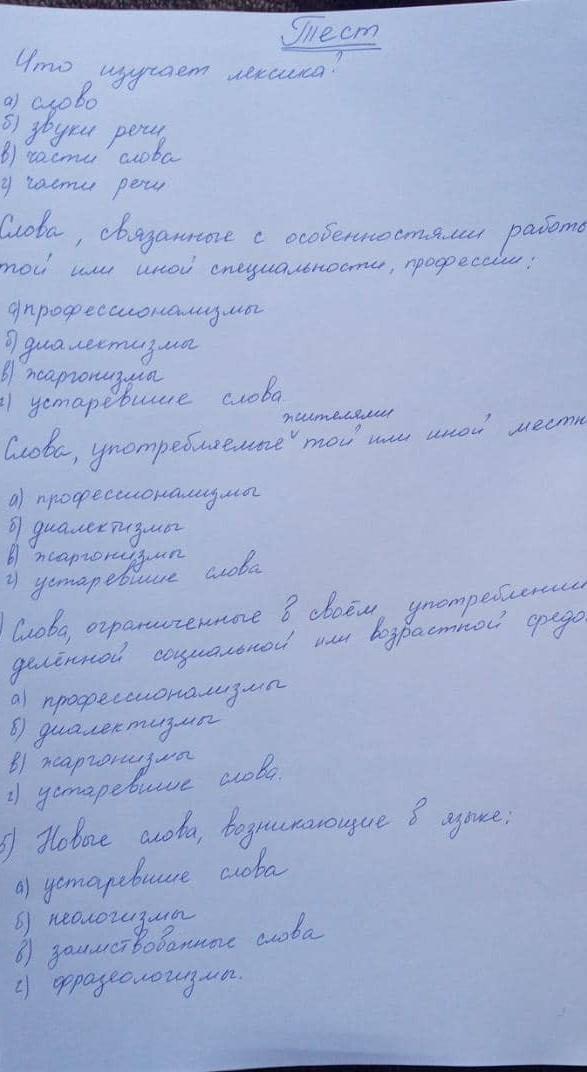 Тест
Что изучает лексика?
а) слово
б) звуки речи
в) части слова
г) части речи
Слова, связанные с особенностями работы
той или иной специальности, профессии:
а) профессионализмы
б) диалектизмы
в) жаргонизмы
г) устаревшие слова
жителями
Слова, употребляемые той или иной местн
а) профессионализмы
б) диалектизмы
в) жаргонизмы
г) устаревшие слова
) Слова, ограниченные в своём употреблении
делённой социальной или возрастной средо
а) профессионализмы
б) диалектизмы
в) жаргонизмы
г) устаревшие слова.
5) Новые слова, возникающие в языке:
а) устаревшие слова
б) неологизмы
в) заимствованные слова
г) фразеологизмы.